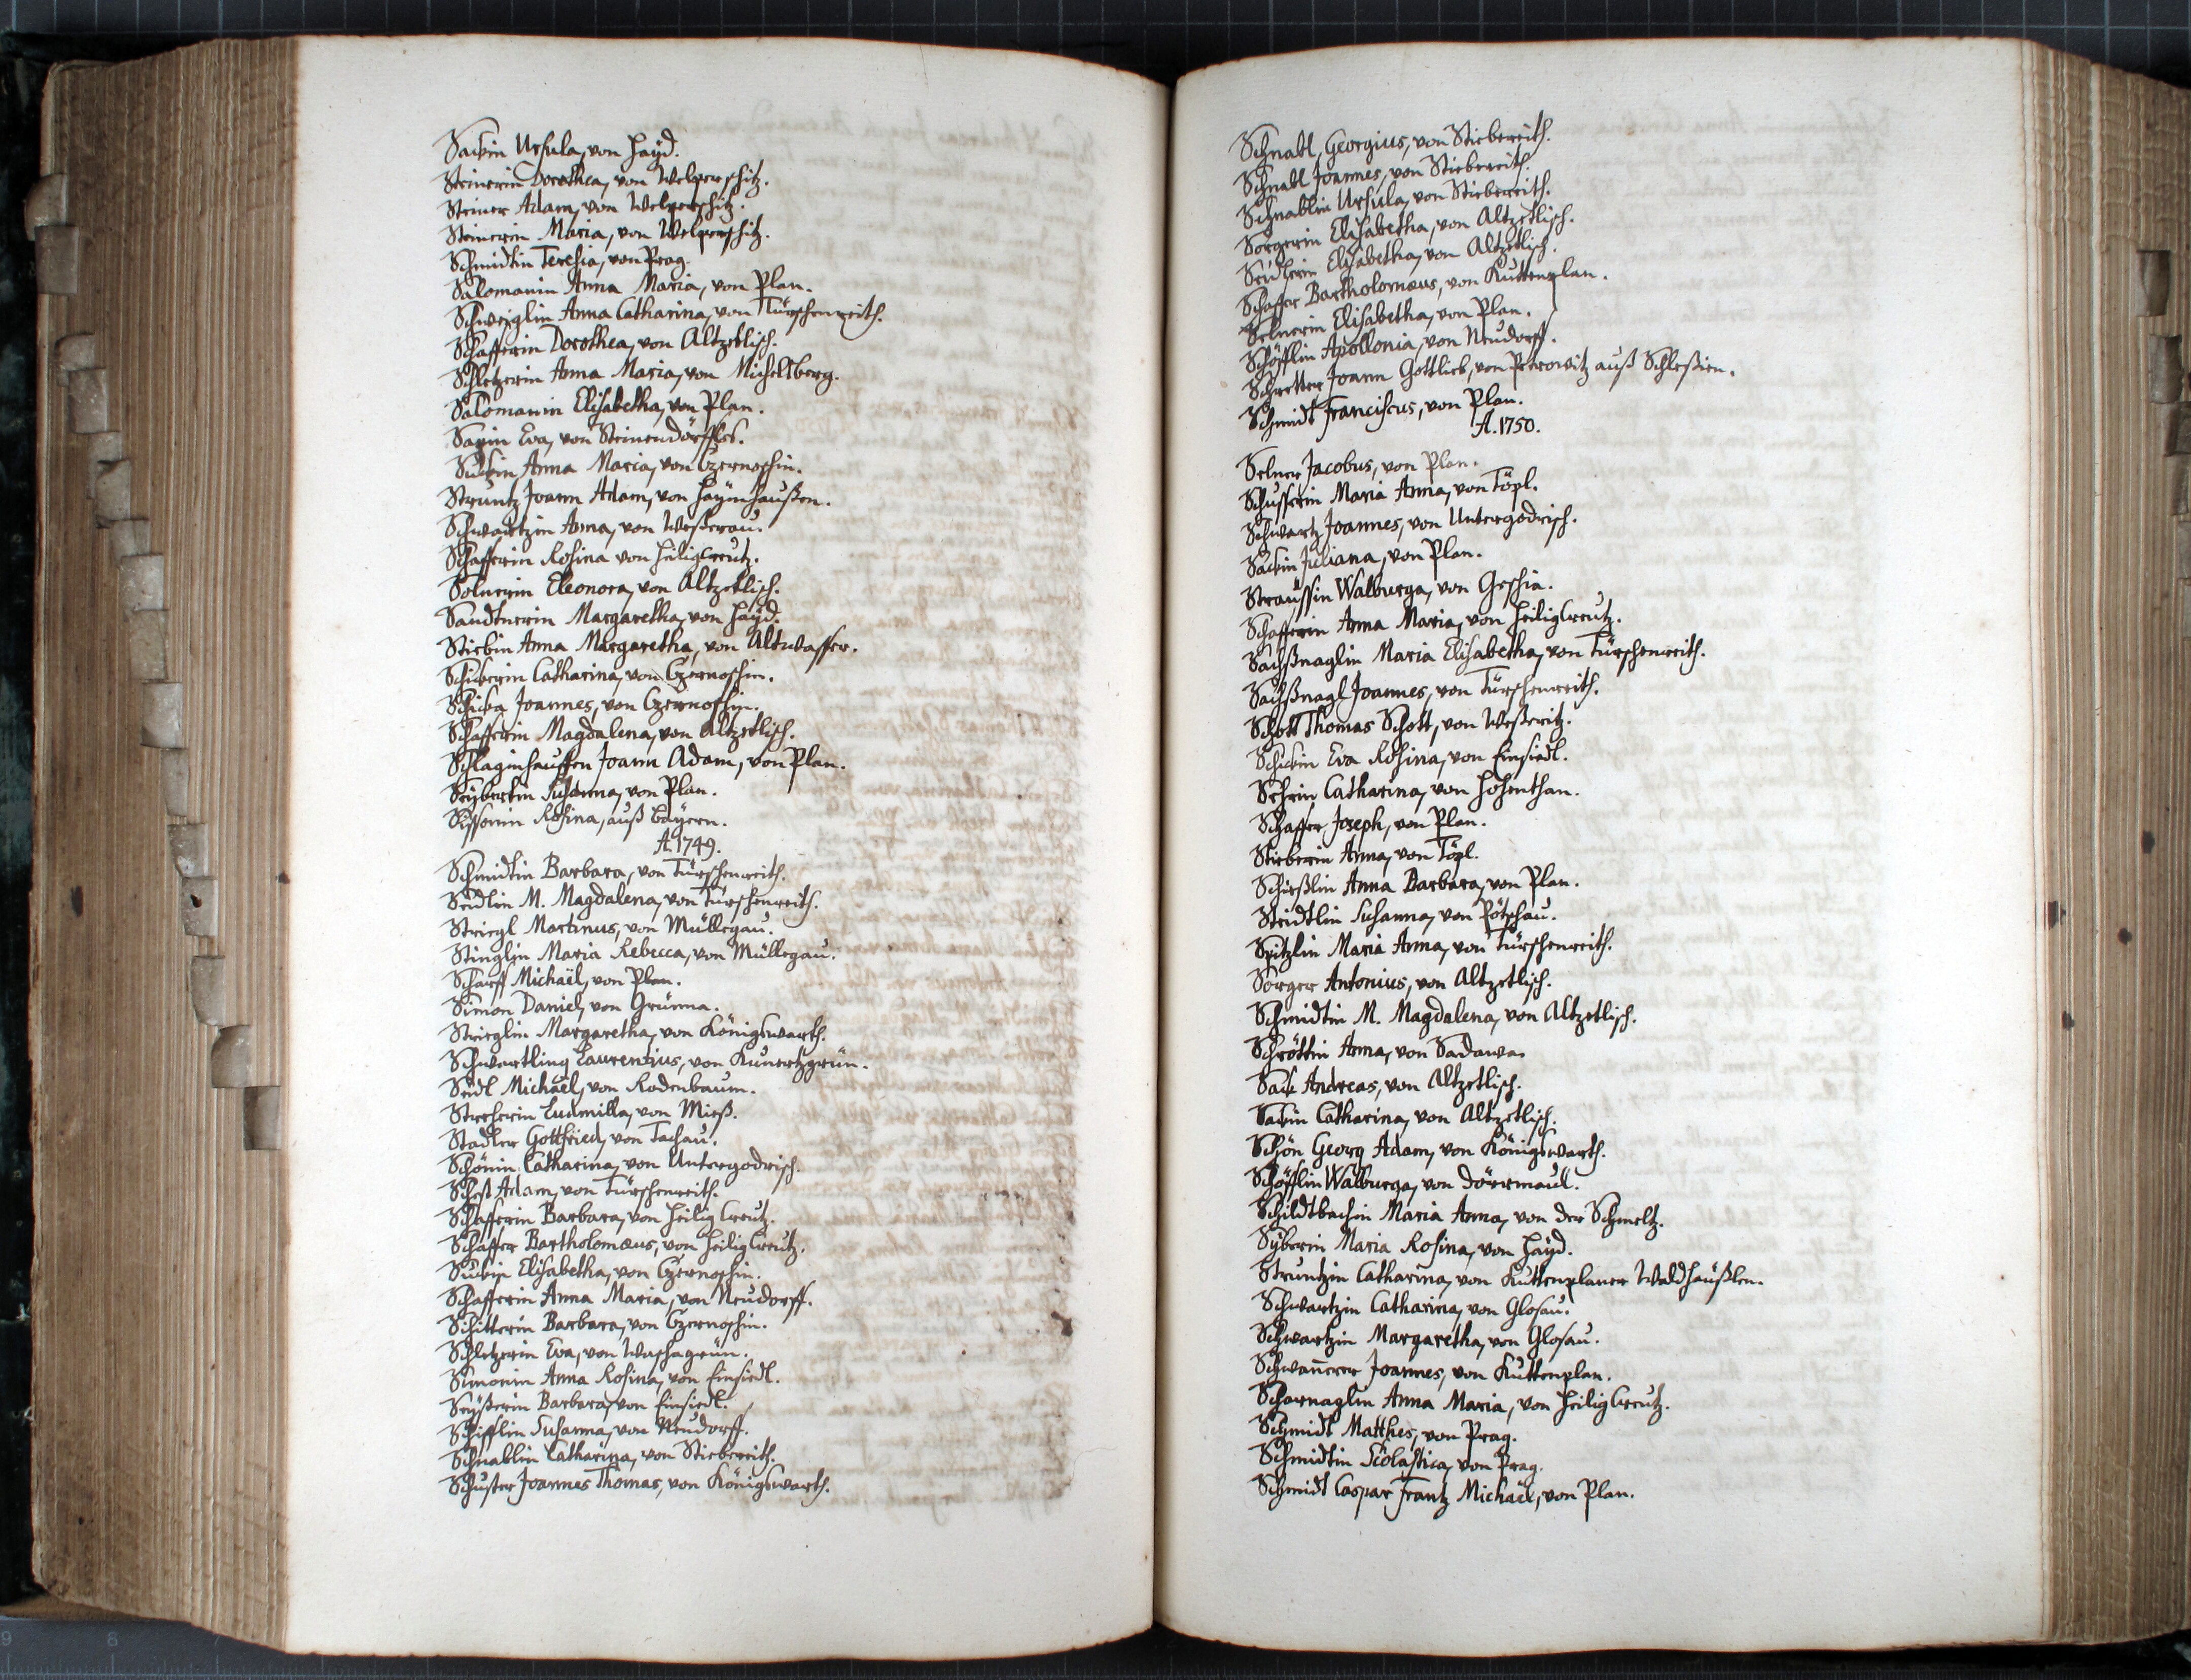 Sackin Ursula, von Hayd.
Steinerin Dorothea, von Welperschitz.
Steiner Adam, von Welperschitz.
Steinerin Maria, von Welperschitz.
Schmidtin Teresia, von Prag.
Salomanin Anna Maria, von Plan.
Schweiglin Anna Catharina, von Türschenreith.
Schafferin Dorothea, von Altzetlisch.
Schletzerin Anna Maria, von Michelsberg.
Salomanin Elisabetha, von Plan.
Eva, von Steinendörffles.
Suckin Anna Maria, von Czernoschin.
Struntz Joann Adam, von Haymhaußen.
Schwartzin Anna, von Weßerau.
Schafferin Rosina von Heiligcreutz.
Solnerin Eleonora, von Altzetlisch.
Sandtnerin Margaretha, von Hayd.
Stiebin Anna Margaretha, von Altwasser.
Schickerin Catharina, von Czernoschin.
Schicka Joannes, von Czernoschin.
Schafferin Magdalena, von Altzetlisch.
Schlaginhauffen Joann Adam, von Plan.
Seybertin Susanna, von Plan.
Rosina, auß Bayern.
A. 1749.
Schmidtin Barbara, von Türschenreith.
Seidlin M. Magdalena, von Türschenreith.
Striegl Martinus, von Müllegau.
Stinglin Maria Rebecca, von Müllegau.
Scharff Michaël, von Plan.
Simon Daniel, von Grünna.
Strieglin Margaretha, von Königswarth.
Schwartling Laurentius, von Kunertzgrün.
Seidl Michaël, von Rodenbaum.
Streherin Ludmilla, von Mieß.
Stadler Gottfried, von Tachau.
Schönin Catharina, von Untergodrisch.
Adam, von Türschenreith.
Schafferin Barbara, von Heilig Creutz.
Schaffer Bartholomæus, von Heilig Creutz.
Suckin Elisabetha, von Czernoschin.
Schafferin Anna Maria, von Neudorff.
Schitterin Barbara, von Czernoschin.
Schletzerin Eva, von Waschagrün.
Simonin Anna Rosina, von Einsiedl.
Seyßerin Barbara, von Einsiedl.
Schifflin Susanna, von Neudorff.
Schnablin Catharina, von Stiebereith.
Schuster Joannes Thomas, von Königswarth.
Schnabl, Georgius, von Stiebereith.
Schnabl Joannes, von Stiebereith.
Schnablin Ursula, von Stiebereith.
Sorgerin Elisabetha, von Altzetlisch.
Seidlerin Elisabetha, von Altzetlisch.
Schaffer Bartholomæus, von Kuttenplan.
Selnerin Elisabetha, von Plan.
Schöfflin Apollonia, von Neudorff.
Schretter Joann Gottlieb, von Petrowitz auß Schleßien.
Schmidt Franciscus, von Plan.
A. 1750.
Selner Jacobus, von Plan.
Schusserin Maria Anna, von Töpl.
Schwartz Joannes, von Untergodrisch.
Sackin Juliana, von Plan.
Straussin Walburga, von Geschia.
Schafferin Anna Maria, von Heilig Creutz.
Sachßnaglin Maria Elisabetha, von Türschenreith.
Sachßnagl Joannes, von Türschenreith.
Schott Thomas Schott, von Weßeritz.
Schickin Eva Rosina, von Einsiedl.
Sehrin Catharina, von Hohenthan.
Schaffer Joseph, von Plan.
Stieberin Anna, von Töpl.
Schießlin Anna Barbara, von Plan.
Steidtlin Susanna, von Pötschau.
Spitzlin Maria Anna, von Türschenreith.
Sorger Antonius, von Altzetlisch.
Schmidtin M. Magdalena, von Altzetlisch.
Schröttin Anna, von Sadawa.
Sack Andreas, von Altzetlisch.
Sackin Catharina, von Altzetlisch.
Schön Georg Adam, von Königswarth.
Schöfflin Walburga, von Dörrmaul.
Schildtbachin Maria Anna, von der Schmeltz.
Syberin Maria Rosina, von Hayd.
Struntzin Catharina, von Kuttenplaner Waldhäußlen.
Schwartzin Catharina, von Glosau.
Schwartzin Margaretha, von Glosau.
Schwan̄erer Joannes, von Kuttenplan.
Scharnaglin Anna Maria, von Heilig Creutz.
Schmidt Matthes, von Prag.
Schmidtin Scolastica, von Prag.
Schmidt Caspar Frantz Michaël, von Plan.